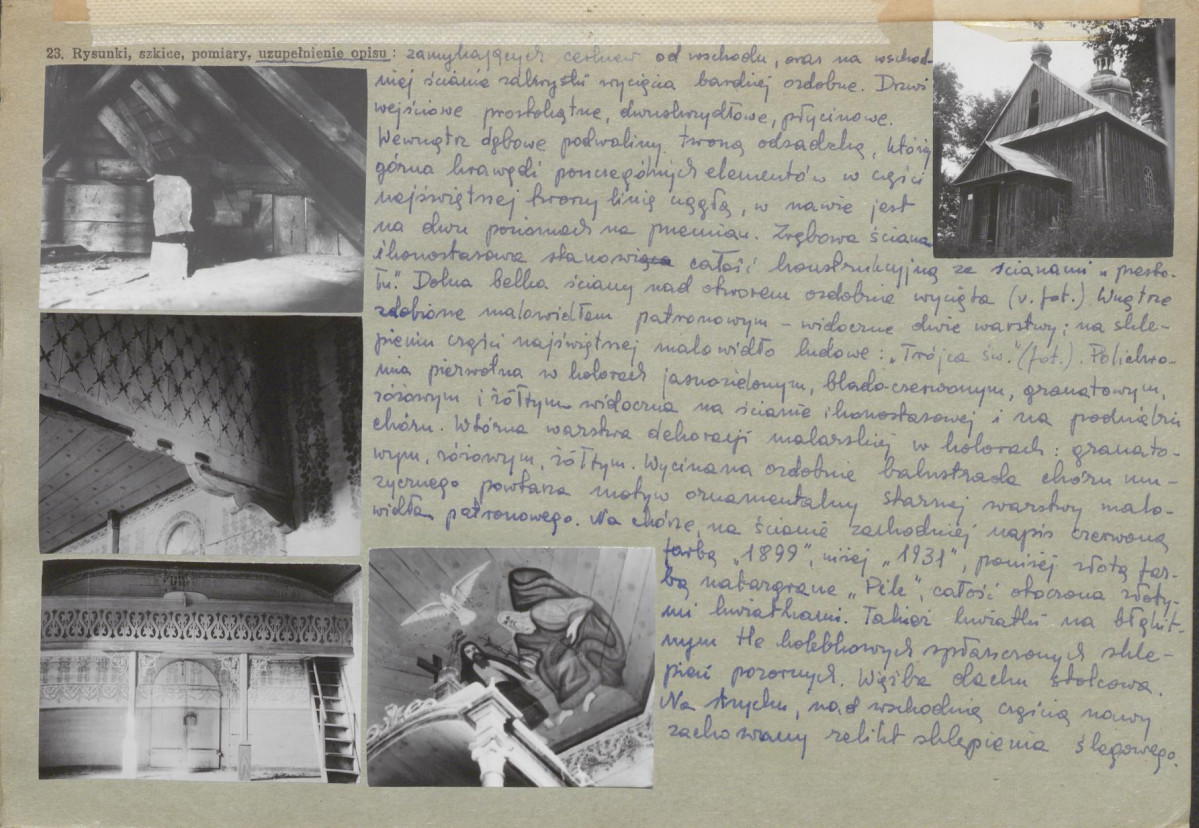 23. Rysunki, szkice, pomiary, uzupełnienie opisu : zamykających cerkiew od wschodu, oraz na wschod-
niej ścianie zakrystii wycięcia bardziej ozdobne. Drzwi
wejściowe prostokątne, dwuskrzydłowe, płycinowe.
Wewnątrz dębowe podwaliny tworzą odsadzkę, którą
górna krawędź poszczególnych elementów w części
najświętszej tworzy linię ciągłą, w nawie jest
na dwu poziomach na przemian. Zrębowa ściana
ikonostasowa stanowi całość konstrukcyjną ze ścianami "prezbi-
Dolna belka ściany nad otworem ozdobnie wycięta (v. fot.) Wnętrze
zdobione malowidłem patronowym – widoczne dwie warstwy; na skle-
pieniu części najświętszej malowidło ludowe: "Trójca św." (fot.). Polichro-
mia pierwotna w kolorach jasnozielonym, blado-czerwonym, granatowym,
różowym i żółtym widoczna na ścianie ikonostasowej i na podniebiu
chóru. Wtórna warstwa dekoracji malarskiej w kolorach: granato-
wym, różowym, żółtym. Wycinana ozdobnie balustrada chóru mu-
zycznego powtarza motyw ornamentalny starszej warstwy malo-
widła patronowego. Na chórze, na ścianie zachodniej napis czerwoną
farbą "1899", niżej "1931", poniżej złotą far-
bą nabazgrane całość otoczona złoty-
mi kwiatkami. Takież kwiatki na błękit-
nym tle kolebkowych spłaszczonych skle-
pień pozornych. Więźba dachu stolcowa.
Na strychu, nad wschodnią częścią nawy
zachowany relikt sklepienia ślęgowego.